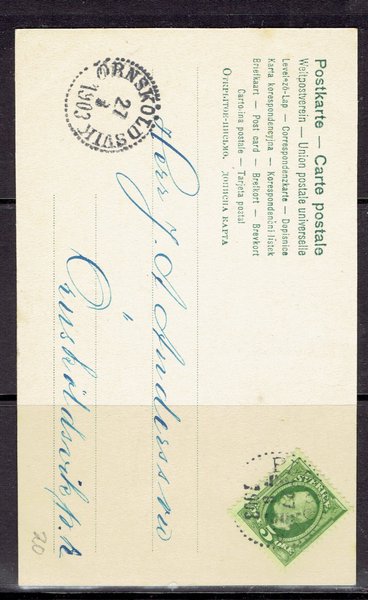 Postkarte — Carte postale
Weltpostverein — Union postale universelle
Levelező-Lap — Correspondenzkarte — Dopisnice
Karta korespondencyjna — Korespondenční lístek
Briefkaart — Post card — Brefkort — Brevkort
Cartolina postale — Tarjeta postal
Открытое письмо. дописна карта
ÖRNSKÖLDSVIK
27
1903
SVERIGE
5 ÖRE
27
1903
Herr J. A Andersson
Örnsköldsvik
20